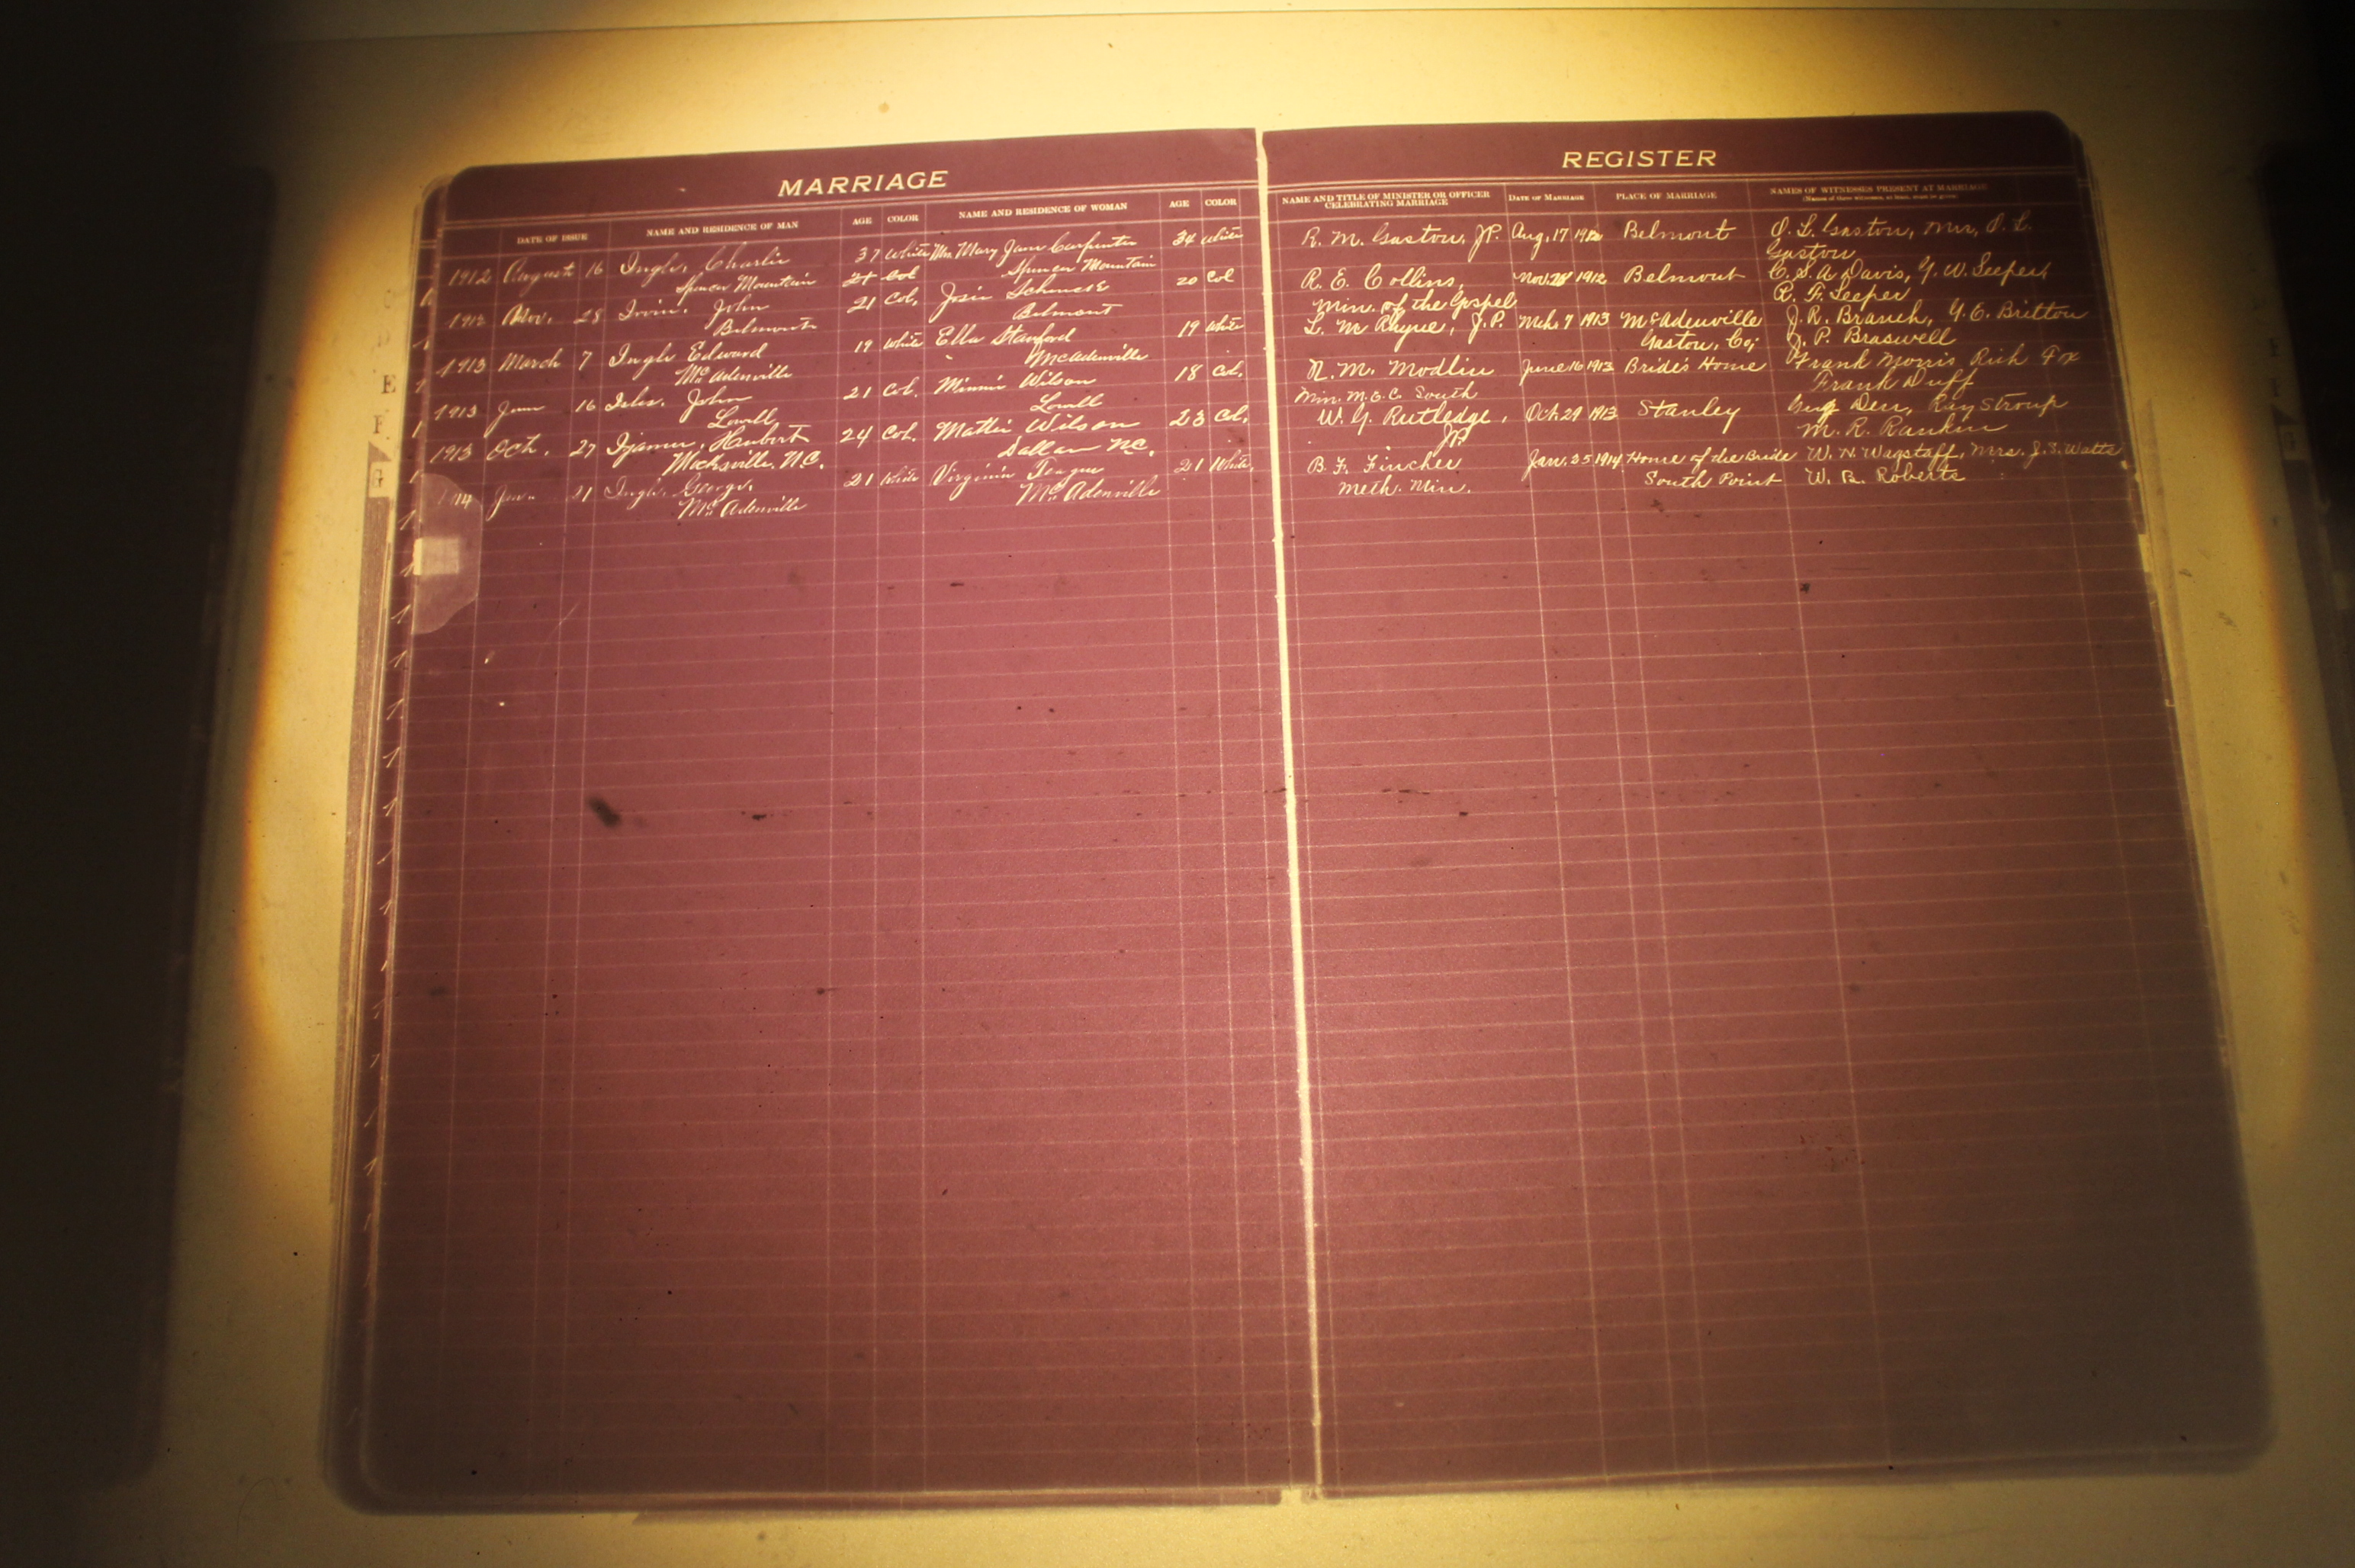 MARRIAGE
DATE OF ISSUE NAME AND RESIDENCE OF MAN AGE COLOR NAME AND RESIDENCE OF WOMAN AGE COLOR
1912 August 16 Ingle, Charlie 37 White Mrs Mary Jane Carpenter 34 White
Spencer Mountain 21 Col Spencer Mountain
1912 Nov. 28 Irvin, John 21 Col. Josie Schenck 20 Col
Belmont Belmont
1913 March 7 Ingle Edward 19 White Ella Stanford 19 White
McAdenville McAdenville
1913 June 16 John 21 Col. Minnie Wilson 18 Col.
Lowell Lowell
1913 Oct. 27 Ijames, Hubert 24 Col. Mattie Wilson 23 Col.
Mocksville, N.C. Dallas N.C.
1914 Jan. 21 Ingle, George 21 White Virginia Teague 21 White
McAdenville McAdenville
REGISTER
NAME AND TITLE OF MINISTER OR OFFICER CELEBRATING MARRIAGE DATE OF MARRIAGE PLACE OF MARRIAGE NAMES OF WITNESSES PRESENT AT MARRIAGE
(Names of three witnesses, at least, must be given)
R. M. Gaston, J.P. Aug. 17 1912 Belmont O. L. Gaston, Mrs, O. L.
Gaston
R. E. Collins, Nov. 28 1912 Belmont C. S. A. Davis, Y. W. Leeper,
Min. of the Gospel R. F. Leeper
L. M Rhyne, J.P. Mch. 7 1913 McAdenville J. R. Branch, Y. C. Britton
Gaston, Co; J. P. Braswell
N. M. Modlin June 16 1913 Bride's Home Frank Morris Rich Fox
Min. M. E. C. South Frank Duff
W. G. Rutledge, Oct. 29 1913 Stanley Ray Stroup
JP M. R. Rankin
B. F. Fincher Jan. 25 1914 Home of the Bride W. N. Wagstaff, Mrs. J. S. Watts
Meth. Min. South Point W. B. Roberts
E
F
G